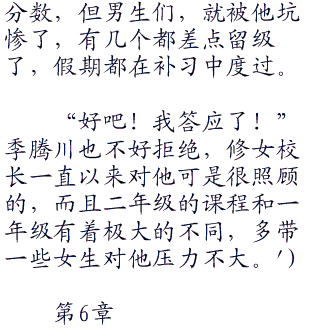 分数，但男生们，就被他坑
惨了，有几个都差点留级
了，假期都在补习中度过。
“好吧！我答应了！”
季腾川也不好拒绝，修女校
长一直以来对他可是很照顾
的，而且二年级的课程和一
年级有着极大的不同，多带
一些女生对他压力不大。')
第6章